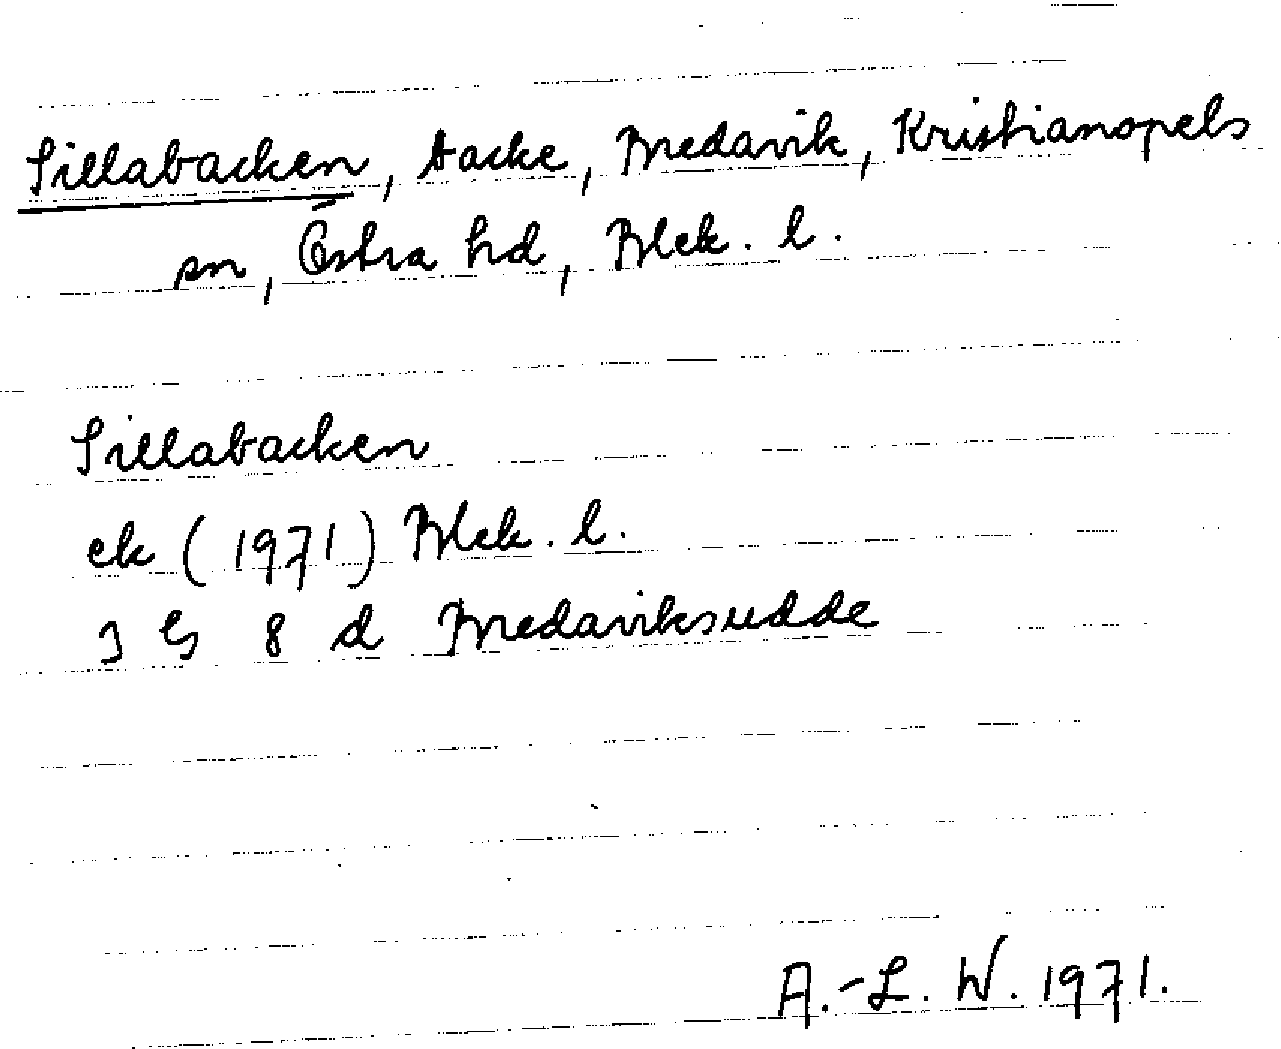 Sillabacken, backe, Bredavik, Kristianopels
sn, Östra hd, Blek. l.
Sillabacken
ek (1971) Blek. l.
3 G 8 d Bredaviksudde
A.-L. W. 1971.